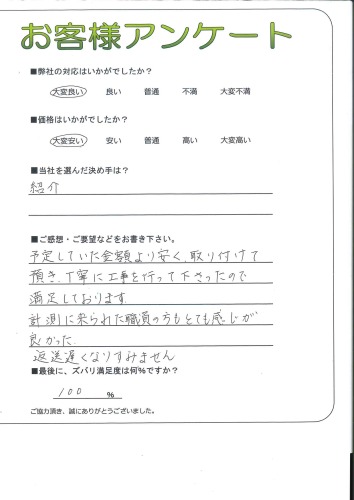 お客様アンケート
■弊社の対応はいかがでしたか？
大変良い 良い 普通 不満 大変不満
■価格はいかがでしたか？
大変安い 安い 普通 高い 大変高い
■当社を選んだ決め手は？
紹介
■ご感想・ご要望などをお書き下さい。
予定していた金額より安く、取り付けて
頂き、丁寧に工事を行って下さったので
満足しております。
計測に来られた職員の方もとても感じが
良かった。
返送遅くなりすみません
■最後に、ズバリ満足度は何％ですか？
100 ％
ご協力頂き、誠にありがとうございました。